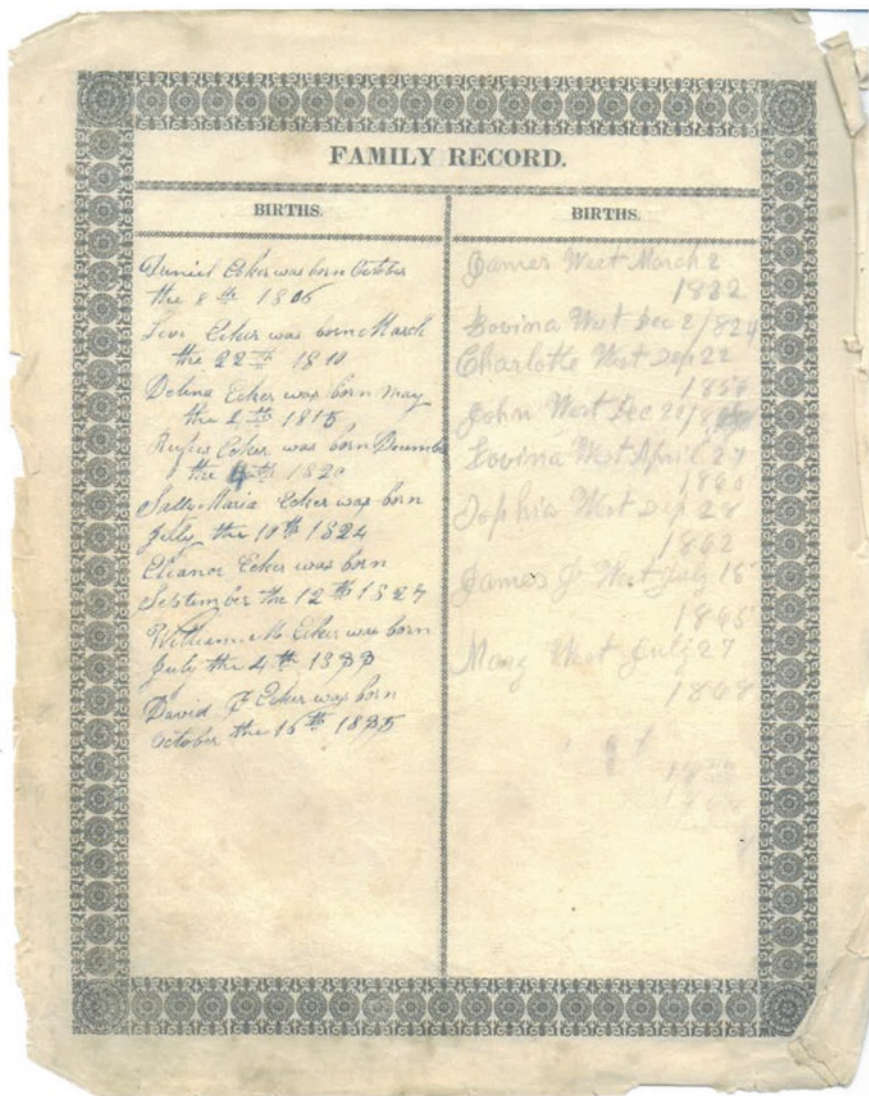 FAMILY RECORD.
BIRTHS.
Daniel Ecker was born October
the 8th 1806
Levi Ecker was born March
the 22th 1810
Delina Ecker was born May
the 1815,
Rufus Ecker was born Decembe
the 4th 1820
Sally Maria Ecker was born
July the 10th 1824
Eleanor Ecker was born
September the 12th 1827
William M Ecker was born
July the 4th 1833
David F Ecker was born
October the 15th 1835
BIRTHS.
James West March 2
1822
Lovina West Dec 2/1824
Charlotte West Sep 22
John West Dec 20
Lovina West April 27
1860
Sophia West Sep 28
1862
James J West July 15
1865
Mary West July 27
1868